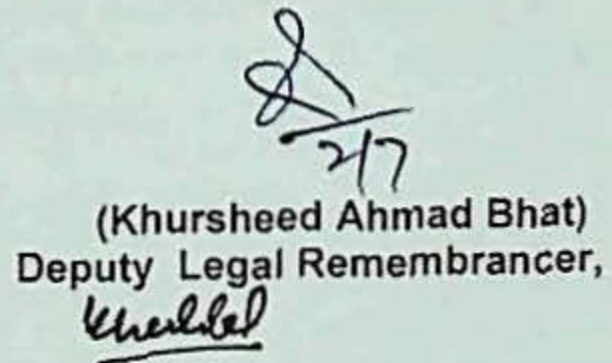 2/7
(Khursheed Ahmad Bhat)
Deputy Legal Remembrancer,